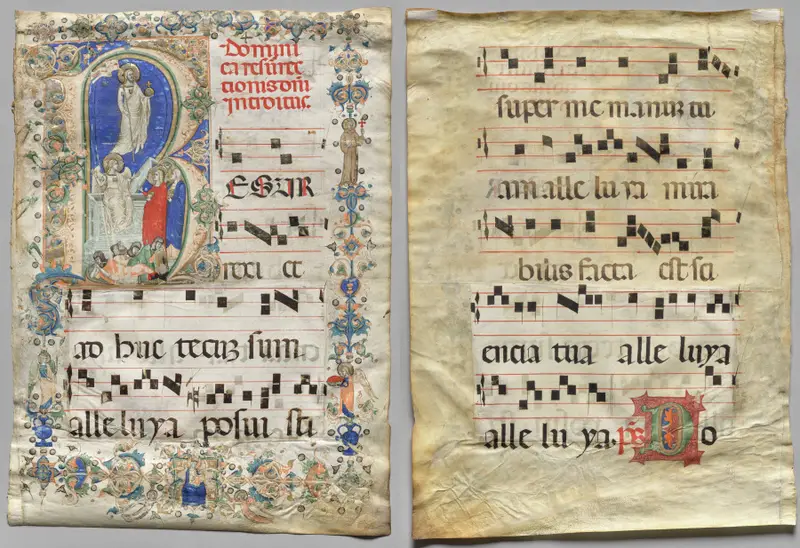 Domini
ca resurec
tionis dni
introitus.
ESURR
rexi et
ad huc tecuz sum
alleluya posui sti
super me manuz tu
am alle lu ya mira
bilis facta est sci
encia tua alle luya
alle lu ya. ps Do